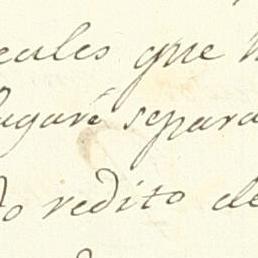 eales que
pagaré separa
do redito de